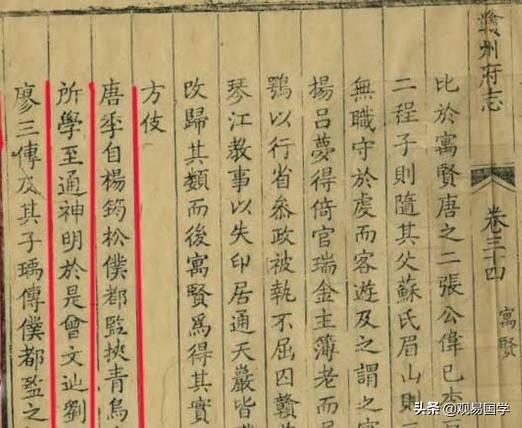 贛州府志
卷三十四
寓賢
比於寓賢唐之二張公偉已本
二程子則隨其父蘇氏眉山則
無職守於虔而客遊及之謂之
揚呂夢得倚官瑞金主簿老而
鶚以行省參政被執不屈囚贛
琴江教事以失印居通天巖皆
改歸其類而後寓賢爲得其實
方伎
唐季自楊筠松僕都監挾青烏
所學至通神明於是曾文辿劉
廖三傳及其子瑀傳僕都監之
头条 @观易国学